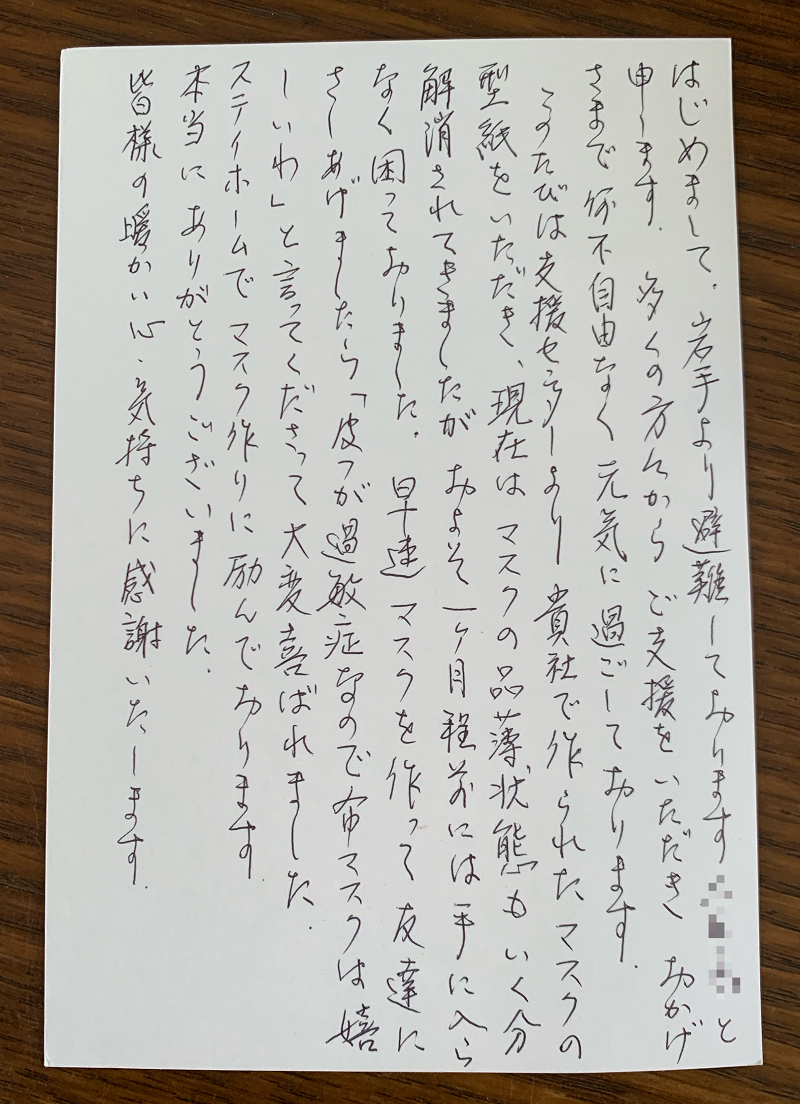 はじめまして。岩手より避難しております と
申します。多くの方々からご支援をいただき おかげ
さまで何不自由なく元気に過ごしております。
このたびは支援センターより 貴社で作られたマスクの
型紙をいただき、現在はマスクの品薄状態もいく分
解消されてきましたが およそ一ヶ月程前には手に入ら
なく困っておりました。早速マスクを作って友達に
さしあげましたら「皮フが過敏症なので布マスクは嬉
しいわ」と言ってくださって大変喜ばれました。
ステイホームでマスク作りに励んでおります
本当にありがとうございました。
皆様の暖かい心・気持ちに感謝いたします。